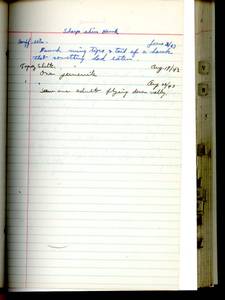 Sharp shin Hawk
June 2/43
Found wing tips & tail of a hawk
that something had eaten.
Aug 17/43
One juvenile
Aug 24/43
Seen one adult flying down valley